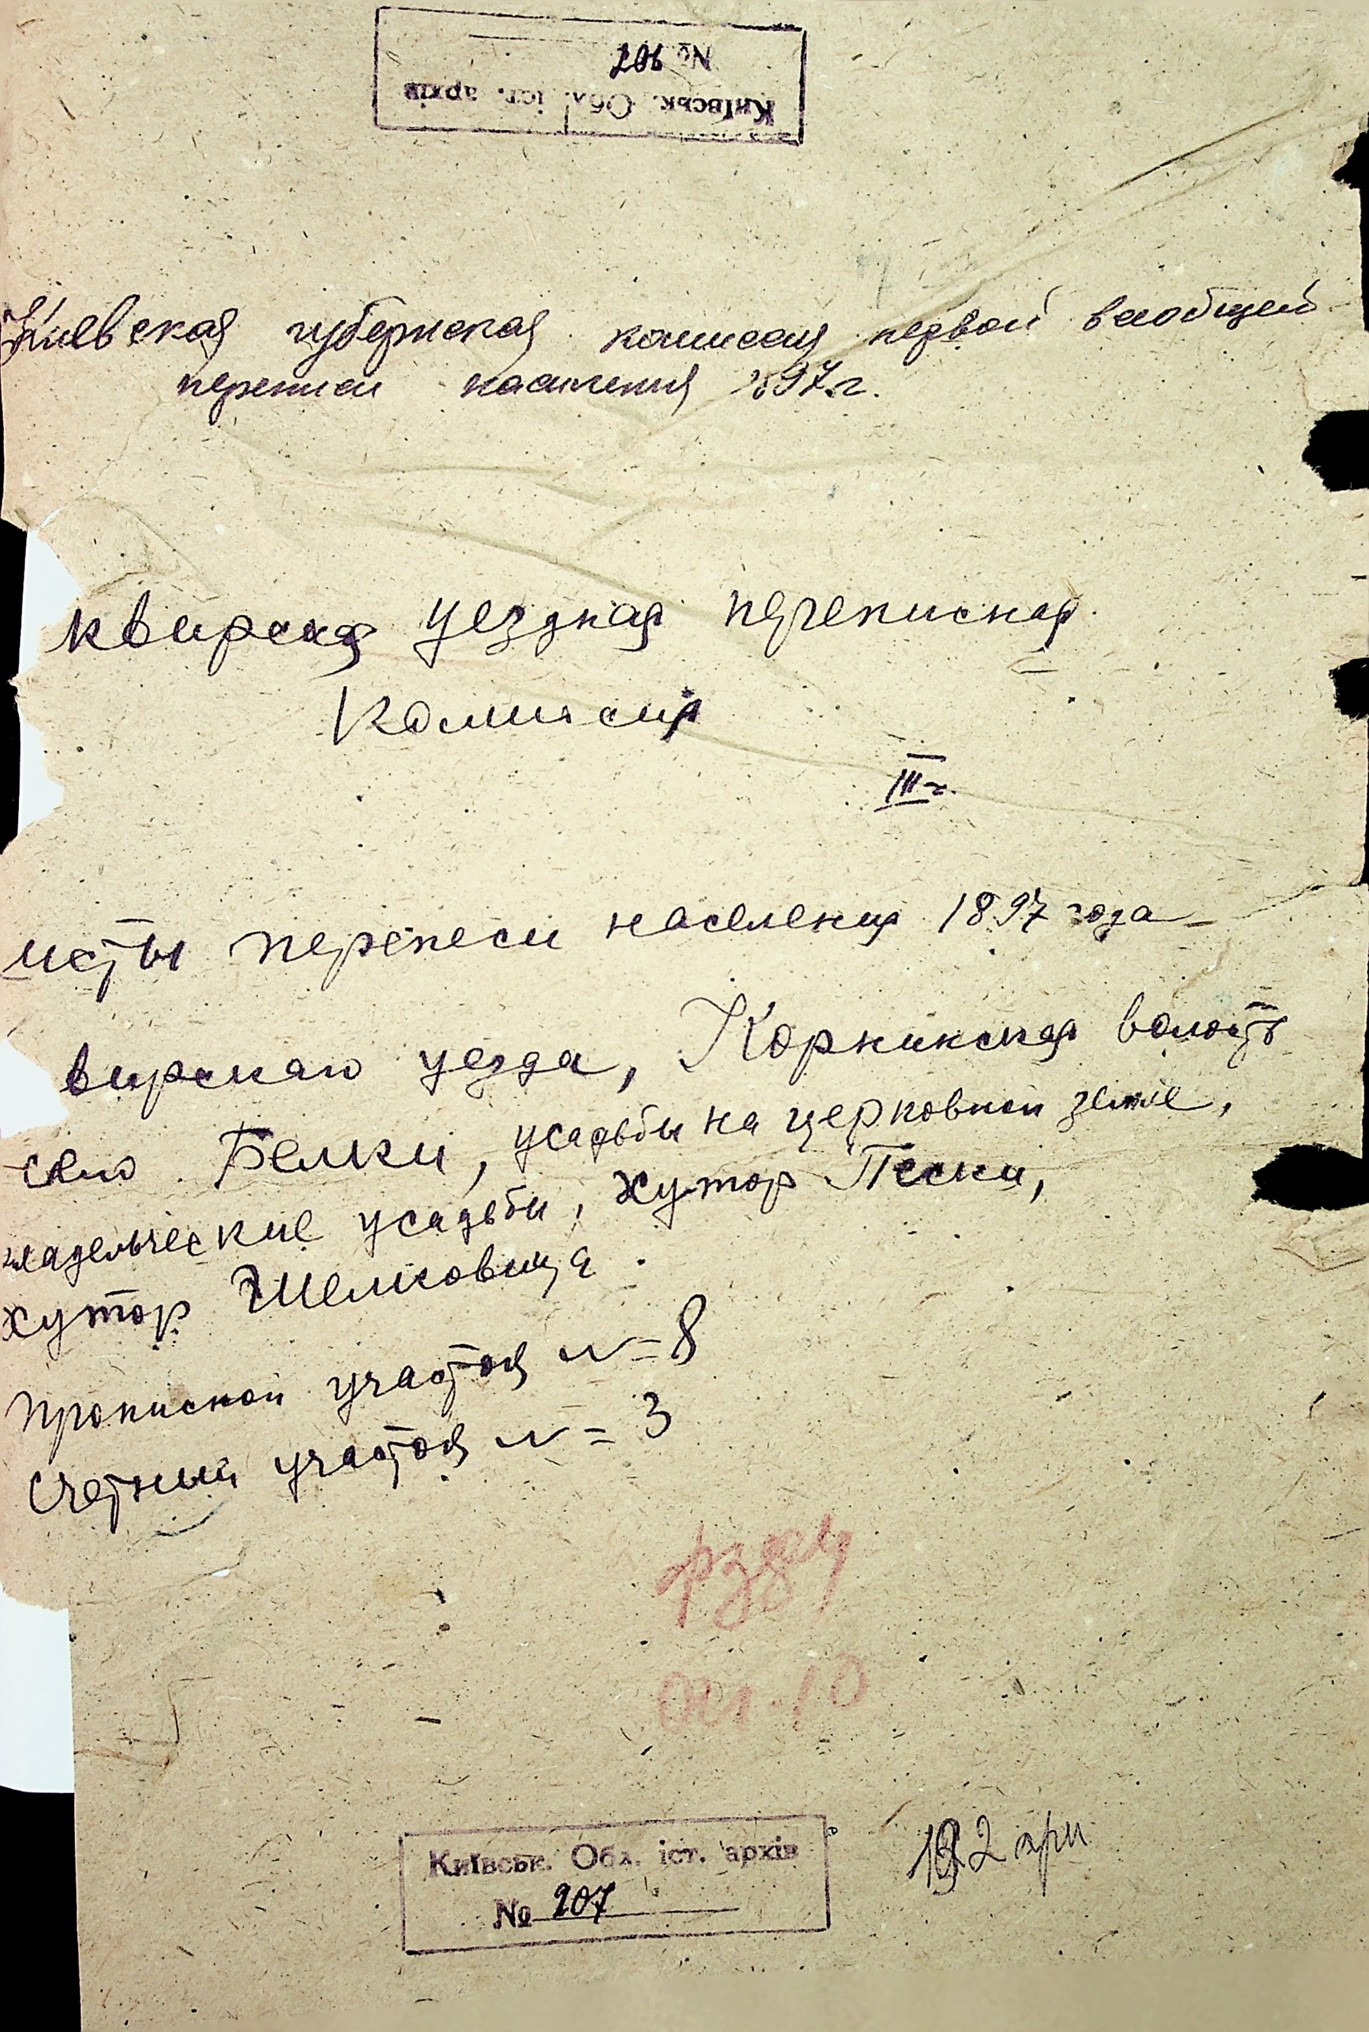 Київськ. Обл. іст. архів
№ 207
Киевская губернская комиссия первой всеобщей
переписи населения 1897 г.
квирская уездная переписная
Комиссия
III г.
исты переписи населения 1897 года
вирского уезда, Корнинская волость
село Белки, усадьбы на церковной земле,
владельческие усадьбы, хутор Пески,
хутор Шелковица.
Прописной участок N = 8
Счетный участок N = 3
оп. 10
Київськ. Обл. іст. архів
№ 207